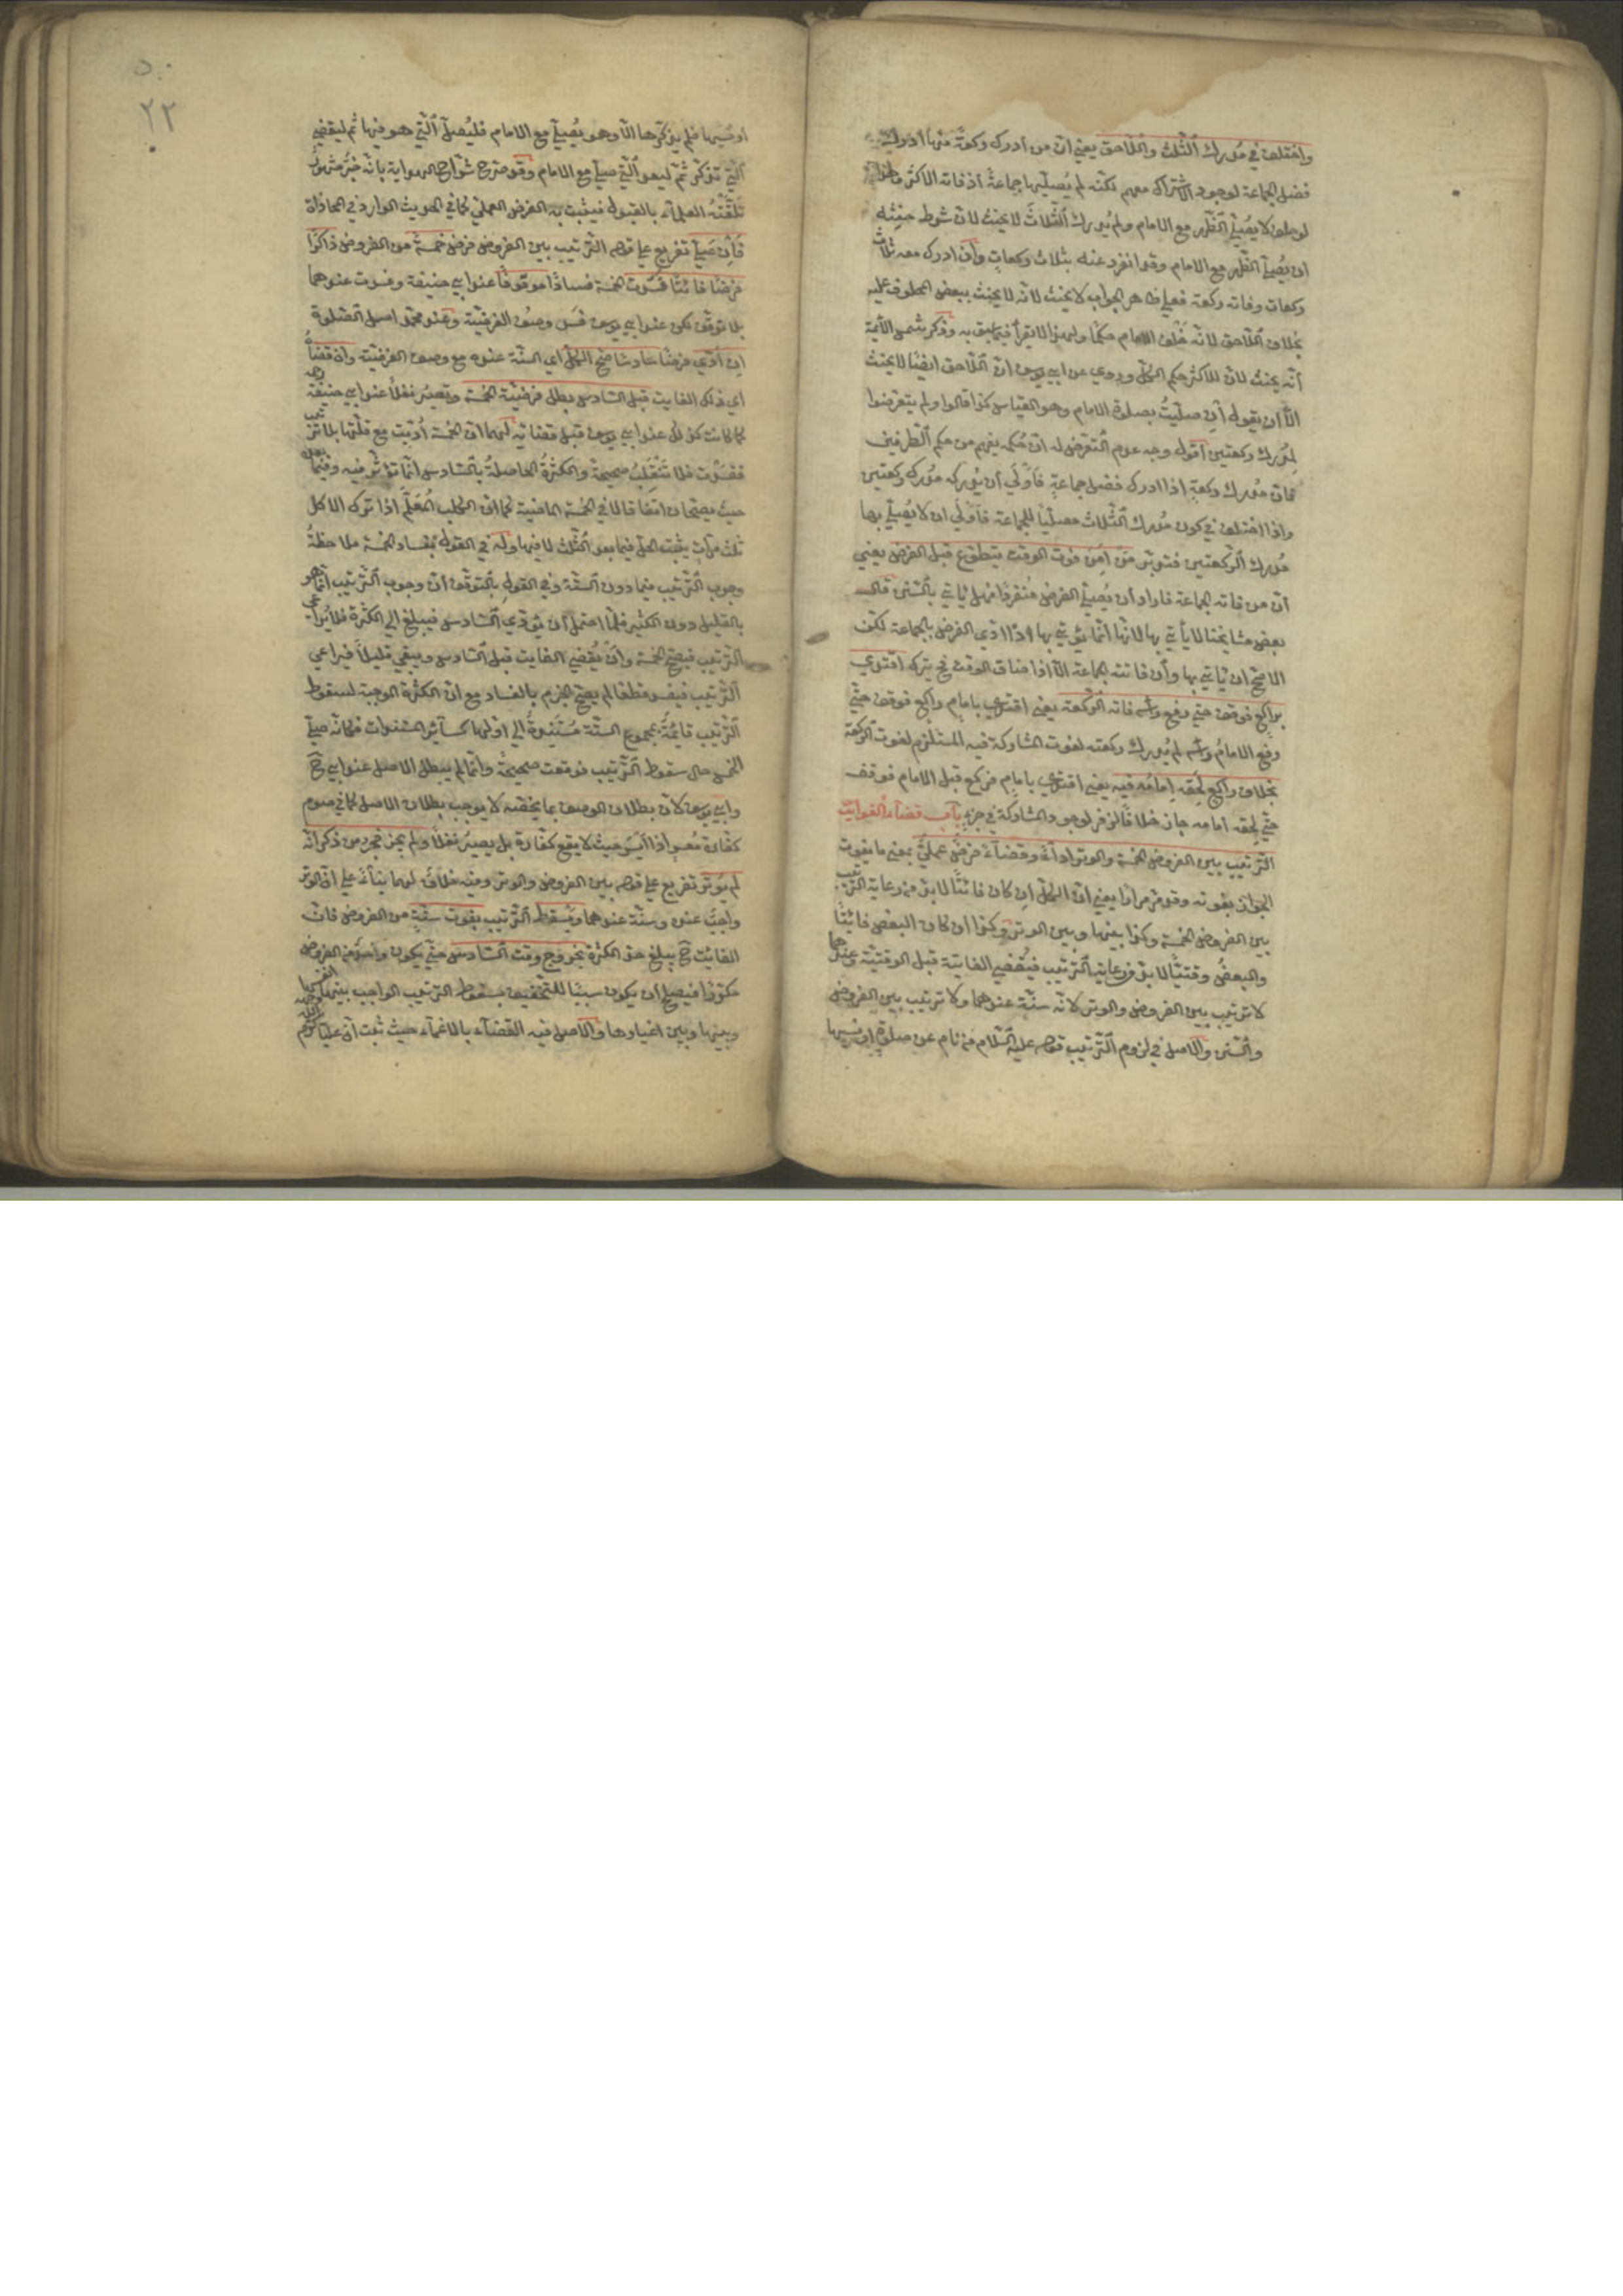 واختلف في مُدرك الثلث واللاحق يعني انّ من أدرك ركعةً منها أدرك
فضل الجماعة لوجود الاشتراك معهم لكنه لم يُصلّيها جماعةً اذ فاته الاكثر
لو حلف لا يُصلّي الظهر مع الامام ولم يُدرك الثلاثَ لا يحنث لانّ شرط حنثه
ان يُصلّي الظهر مع الامام وقد انفرد عنه بثلاث ركعاتٍ وأن ادرك معه ثلاث
ركعات وفاته ركعة فعلى ظاهر الجواب لا يحنث لانه لا يحنث ببعض المحلوف عليه
بخلاف اللاحق لانه خلف الامام حكمًا ولهذا لا يقرأ فيما سبق به وذكر شمس الأئمة
أنّه يحنث لانّ للاكثر حكم الكل وروي عن ابي يوسف انّ اللاحق ايضًا لا يحنث
الّا ان يقول ان صلّيتُ بصلوة الامام وهو القياس كذا قالوا ولم يتعرضوا
لمُدرك ركعتين أقول وجه عدم التعرض له انّ حكمه يفهم من حكم الطرفين
فانّ مُدرك ركعةٍ اذا ادرك فضل جماعةٍ فأولى أن يُدركه مُدرك ركعتين
واذا اختلف في كون مُدرك الثلاث مصلّيًا للجماعة فأولى ان لا يُصلّي بها
مُدرك الركعتين فتدبّر مَن أمِنَ فوت الوقت يتطوع قبل الفرض يعني
أنّ من فاته الجماعة فاراد أن يُصلّي الفرض مُنفردًا فهل يأتي بالسنن قال
بعض مشايخنا لا يأتي بها لانّها انّما يؤتي بها اذا ادّي الفرض بالجماعة لكن
الاصح ان يأتي بها وأن فاتته الجماعة الّا اذا ضاق الوقت فح يترك اقتدي
براكع فوقف حتي رفع رأسه فاته الركعة يعني اقتدي بامامٍ راكع فوقف حتّي
رفع الامامُ رأسه لم يُدرك ركعته لفوت المشاركة فيه المستلزم لفوت الركعة
بخلاف راكع لحقه امامُه فيه يعني اقتدي بامامٍ فركع قبل الامام فوقف
حتّي لحقه امامه جاز خلافًا لزفر لوجود المشاركة في جزءٍ باب قضاء الفوائت
الترتيب بين الفروض الخمسة والوتر اداءً وقضاءً فرضٌ عمليٌّ بمعني ما يفوت
الجواز بفوته وقد مرّ مرارًا يعني انّ الكلّ ان كان فائتًا لا بدّ من رعاية الترتيب
بين الفروض الخمسة وكذا بينها وبين الوتر وكذا ان كان البعض فائتًا
والبعضُ وقتيًّا لا بدّ من رعاية الترتيب فيُقضي الفايتة قبل الوقتيّة وعندهما
لا ترتيب بين الفروض والوتر لانّه سنّة عندهما ولا ترتيب بين الفروض
والسنن والاصل في لزوم الترتيب قوله عليه السّلام من نام عن صلوةٍ او نسيها
٢٢
او نسيها فلم يذكرها الّا وهو يُصلّي مع الامام فليُصلّ الّتي هو فيها ثم ليقضي
الّتي تذكّر ثمّ ليعد الّتي صلّي مع الامام وقد صرح شرّاح الهداية بانّه خبرٌ مشهورٌ
تلقّتهُ العلماء بالقبول فيثبت به الفرض العملي كما في الحديث الوارد في المحاذاة
فأن صلّي تفريع علي قوله الترتيب بين الفروض فرض خمسةً من الفروض ذاكرًا
فرضًا فائتًا فسدت الخمسة فسادًا موقوفًا عند ابي حنيفة وفسدت عندهما
بلا توقّف لكن عند ابي يوسف فسد وصف الفرضيّة وعند محمد اصل الصّلوة
ان أدّي فرضًا سادسًا صحّ الكلّ اي الستّة عنده مع وصف الفرضيّة وان قضاه
اي ذلك الفايت قبل السّادس بطل فرضيّة الخمسة وتصيرُ نفلًا عند ابي حنيفة رحمه
كما كانت كذلك عند ابي يوسف قبل قضائه لهما انّ الخمسة اُدّيت مع قلّتها بلا ترتيب
ففسدت فلا تنقلبُ صحيحةً والكثرةُ الحاصلةُ بالسّادس انّما تؤثّر فيه وفيما بعده
حيث يصحّان اتفاقا لا في الخمسة الماضية كما انّ الكلب المُعلّم اذا ترك الاكل
ثلث مرّات يثبت الحلّ فيما بعد الثلث لا فيها وله في القول بفساد الخمسة ملاحظةُ
وجوب الترتيب فيما دون الستّة وفي القول بالتوقّف انّ وجوب الترتيب انّما هو
بالقليل دون الكثير فلمّا احتمل أن يؤدّي السّادس فيبلغ الي الكثرة فلا يُراعي
الترتيب فيصحّ الخمسة وأن يُقضي الفايت قبل السّادس ويبقي قليلًا فيراعي
الترتيب فيفسد قطعًا لم يصحّ الجزم بالفساد مع انّ الكثرة الموجبة لسقوط
الترتيب قائمةٌ بمجموع الستّة مُستندةٌ الي اوّلها كسائر المستندات فكانّه صلّي
الخمس حال سقوط الترتيب فوقعت صحيحةً وانّما لم يبطل الاصل عند ابي ح
وابي يوسف لانّ بطلان الوصف بما يخصّه لا يوجب بطلان الاصل كما في صوم
كفّارة مُعسرٍ اذا أيسر حيث لا يقع كفّارة بل يصيرُ نفلًا ولم يجز فجر من ذكر انّه
لم يُوتر تفريع علي قوله بين الفروض والوتر وفيه خلافٌ لهما بناءً علي انّ الوتر
واجبٌ عنده وسنّة عندهما ويُسقط الترتيب بفوت ستّةٍ من الفروض فانّ
الفائت ح يبلغ حدّ الكثرة بخروج وقت السّادس حتّي يكون واحد من الفروض
مكرّرًا فيصلح أن يكون سببًا للتّخفيف بسقوط الترتيب الواجب بينها انفسها
وبينها وبين اغيارها والاصل فيه القضاء بالاغماء حيث ثبت أنّ عليًّا كرّم